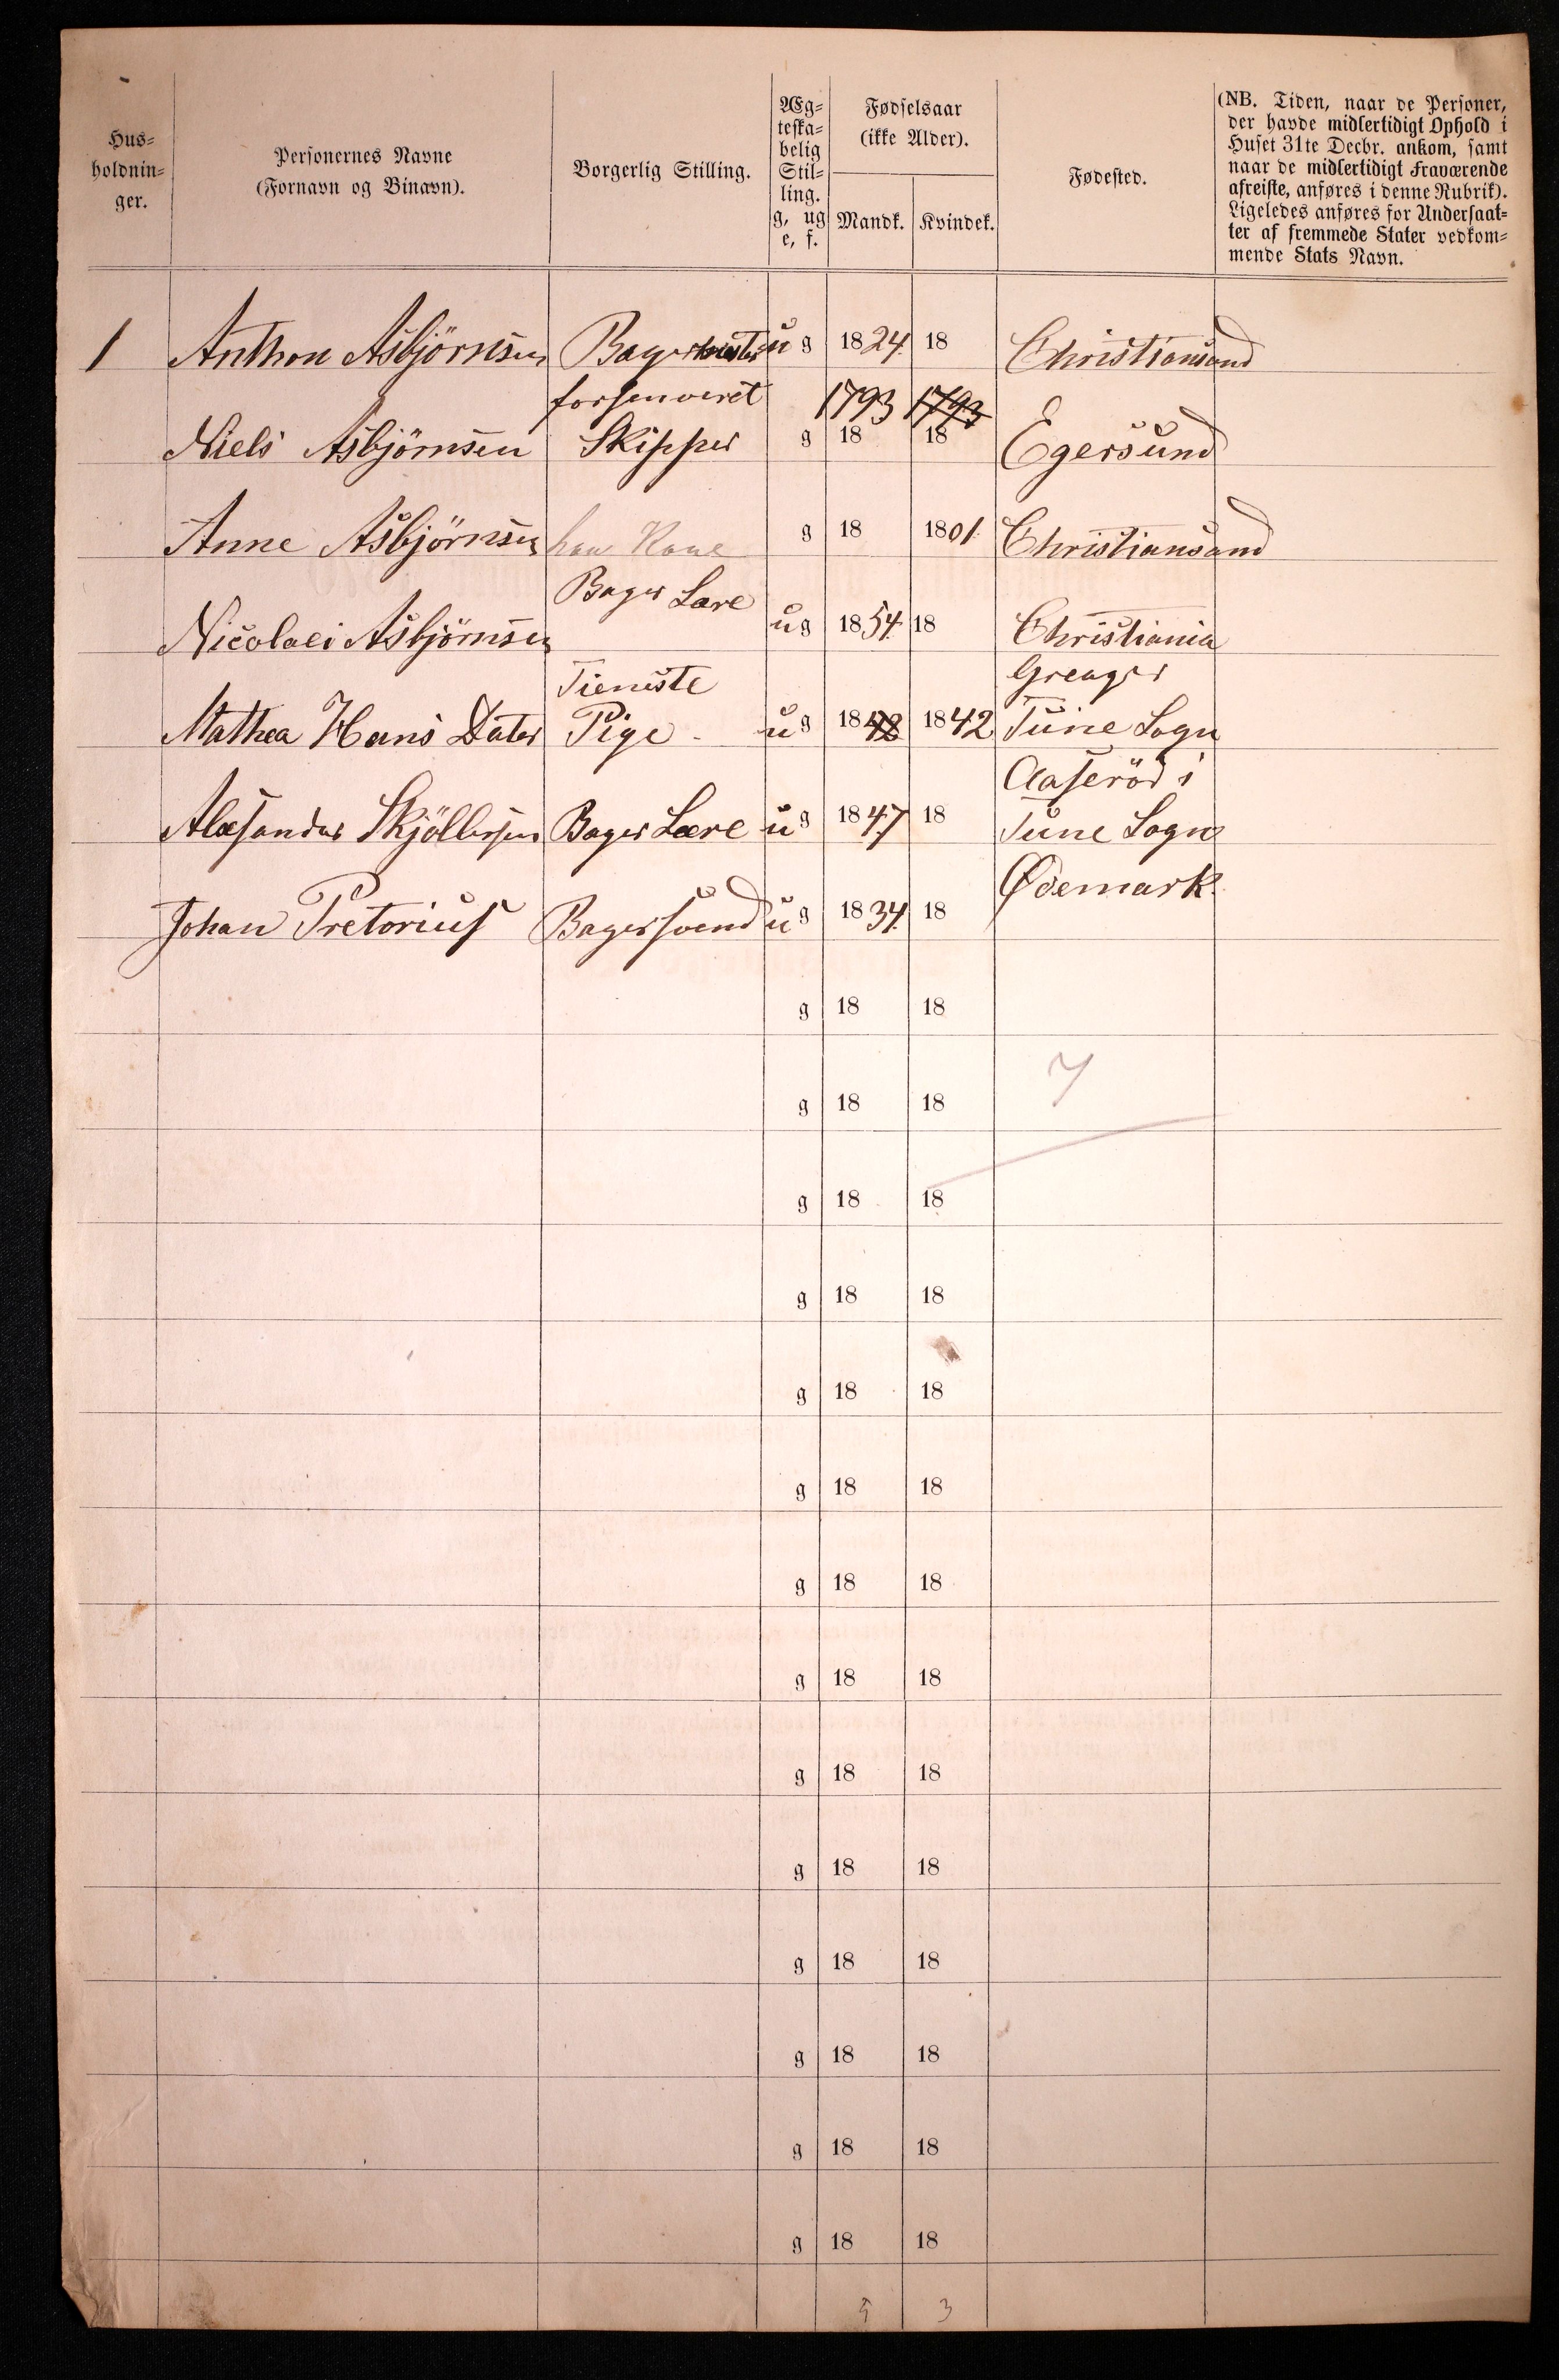 Hus=
holdnin=
ger.
Personernes Navne
(Fornavn og Binavn).
Borgerlig Stilling.
Æg=
teska=
belig
Stil=
ling.
g, ug
e, f.
Fødselsaar
(ikke Alder).
Mandk. Kvindek.
Fødested.
(NB. Tiden, naar de Personer,
der havde midlertidigt Ophold i
Huset 31te Decbr. ankom, samt
naar de midlertidigt Fraværende
afreiste, anføres i denne Rubrik).
Ligeledes anføres for Undersaat=
ter af fremmede Stater vedkom=
mende Stats Navn.
1 Anthon Asbjörnsen Bagermester ug 1824 18 Christiansand
forhenveret 1793 1793
Niels Asbjörnsen Skipper g 18 18 Egersund
Anne Asbjörnsen hans Kone g 18 1801 Christiansand
Bager Lære
Nicolaei Asbjörnsen ug 1854 18 Christiania
Tieniste Greager
Mathea Hans Dater Pige ug 1842 1842 Tune Sogn
Aaseröd i
Alexander Skjöllersen Bager Lære ug 1847 18 Tune Sogn
Ødemark
Johan Pretorius Bagersvend ug 1834 18
g 18 18
7
g 18 18
g 18 18
g 18 18
g 18 18
g 18 18
g 18 18
g 18 18
g 18 18
g 18 18
g 18 18
g 18 18
g 18 18
g 18 18
5 3